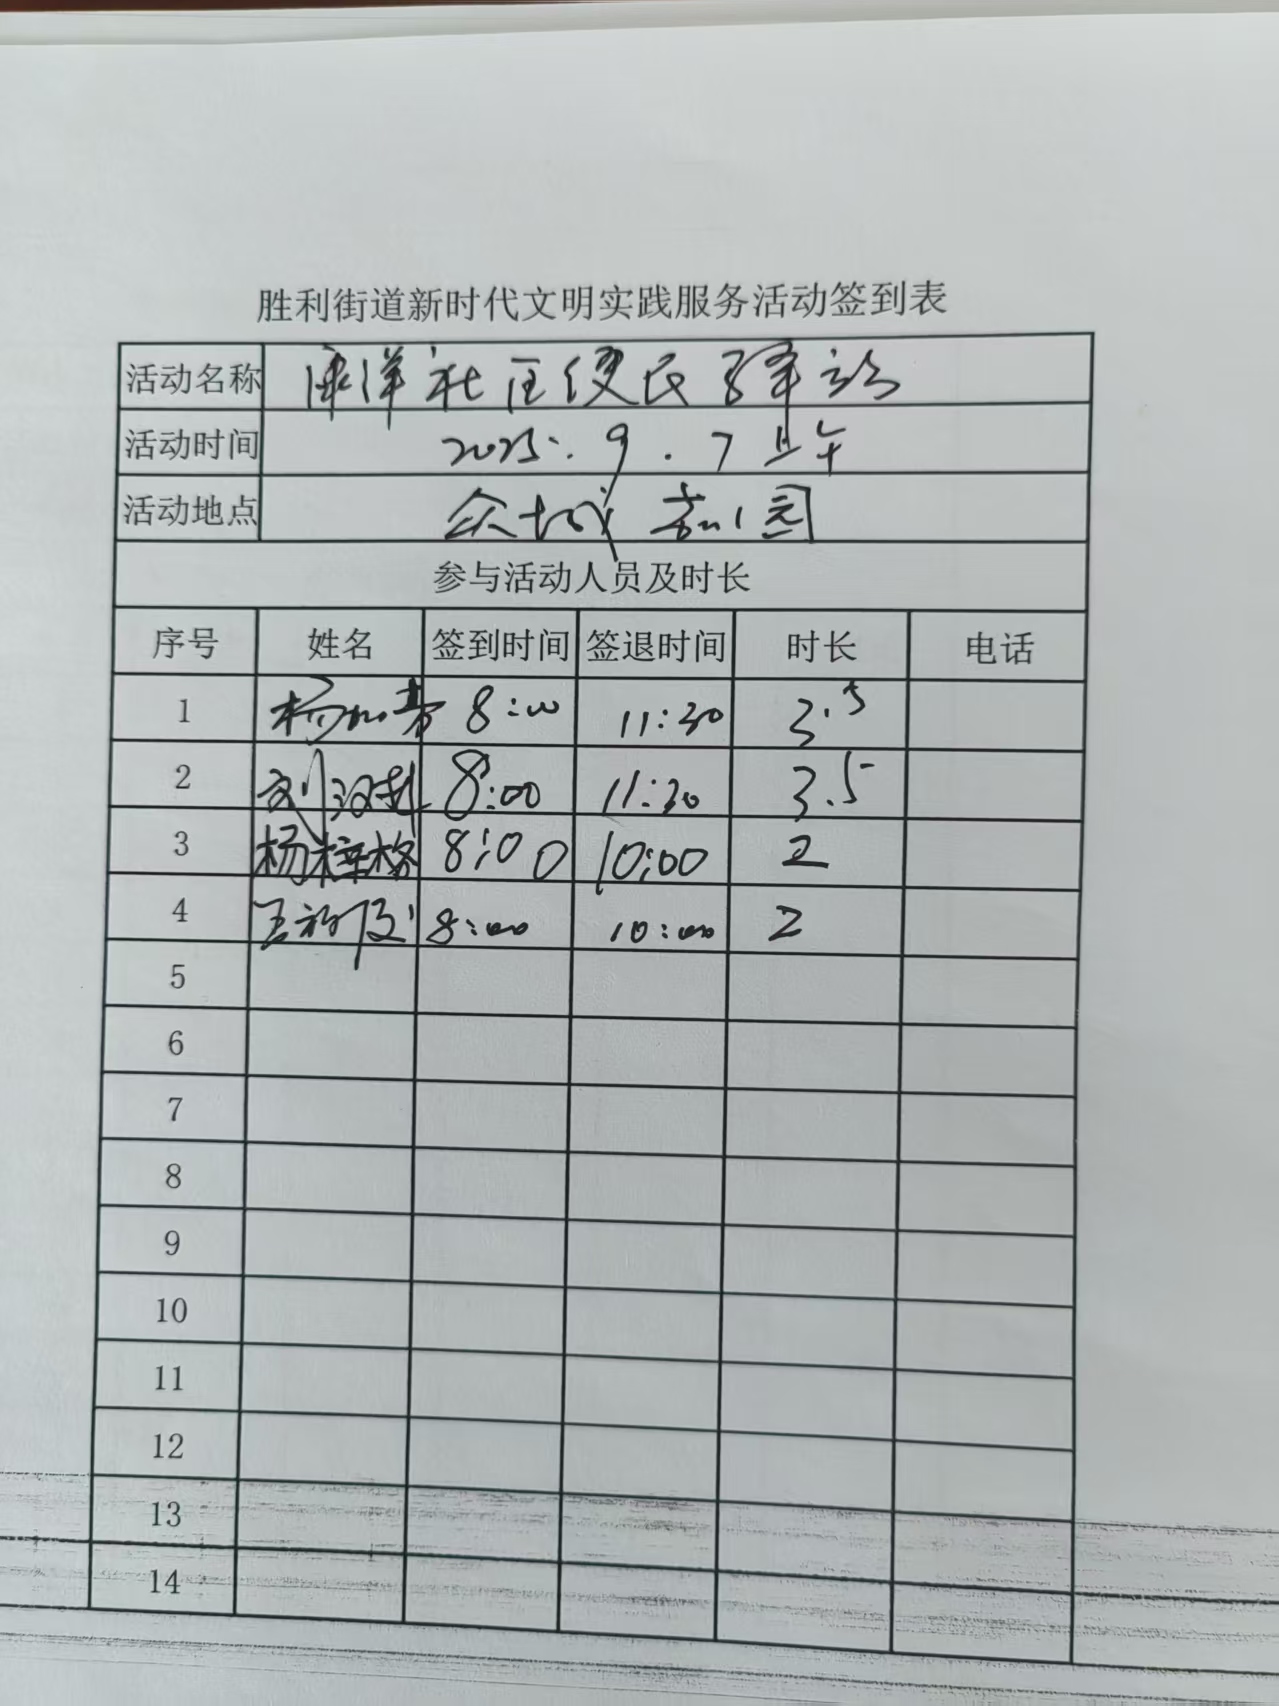 胜利街道新时代文明实践服务活动签到表
活动名称 康洋社区便民驿站
活动时间 2025.9.7上午
活动地点 众城嘉园
参与活动人员及时长
序号 姓名 签到时间 签退时间 时长 电话
1 杨 8:00 11:30 3.5
2 刘汉 8:00 11:30 3.5
3 杨梓格 8:00 10:00 2
4 王 8:00 10:00 2
5
6
7
8
9
10
11
12
13
14